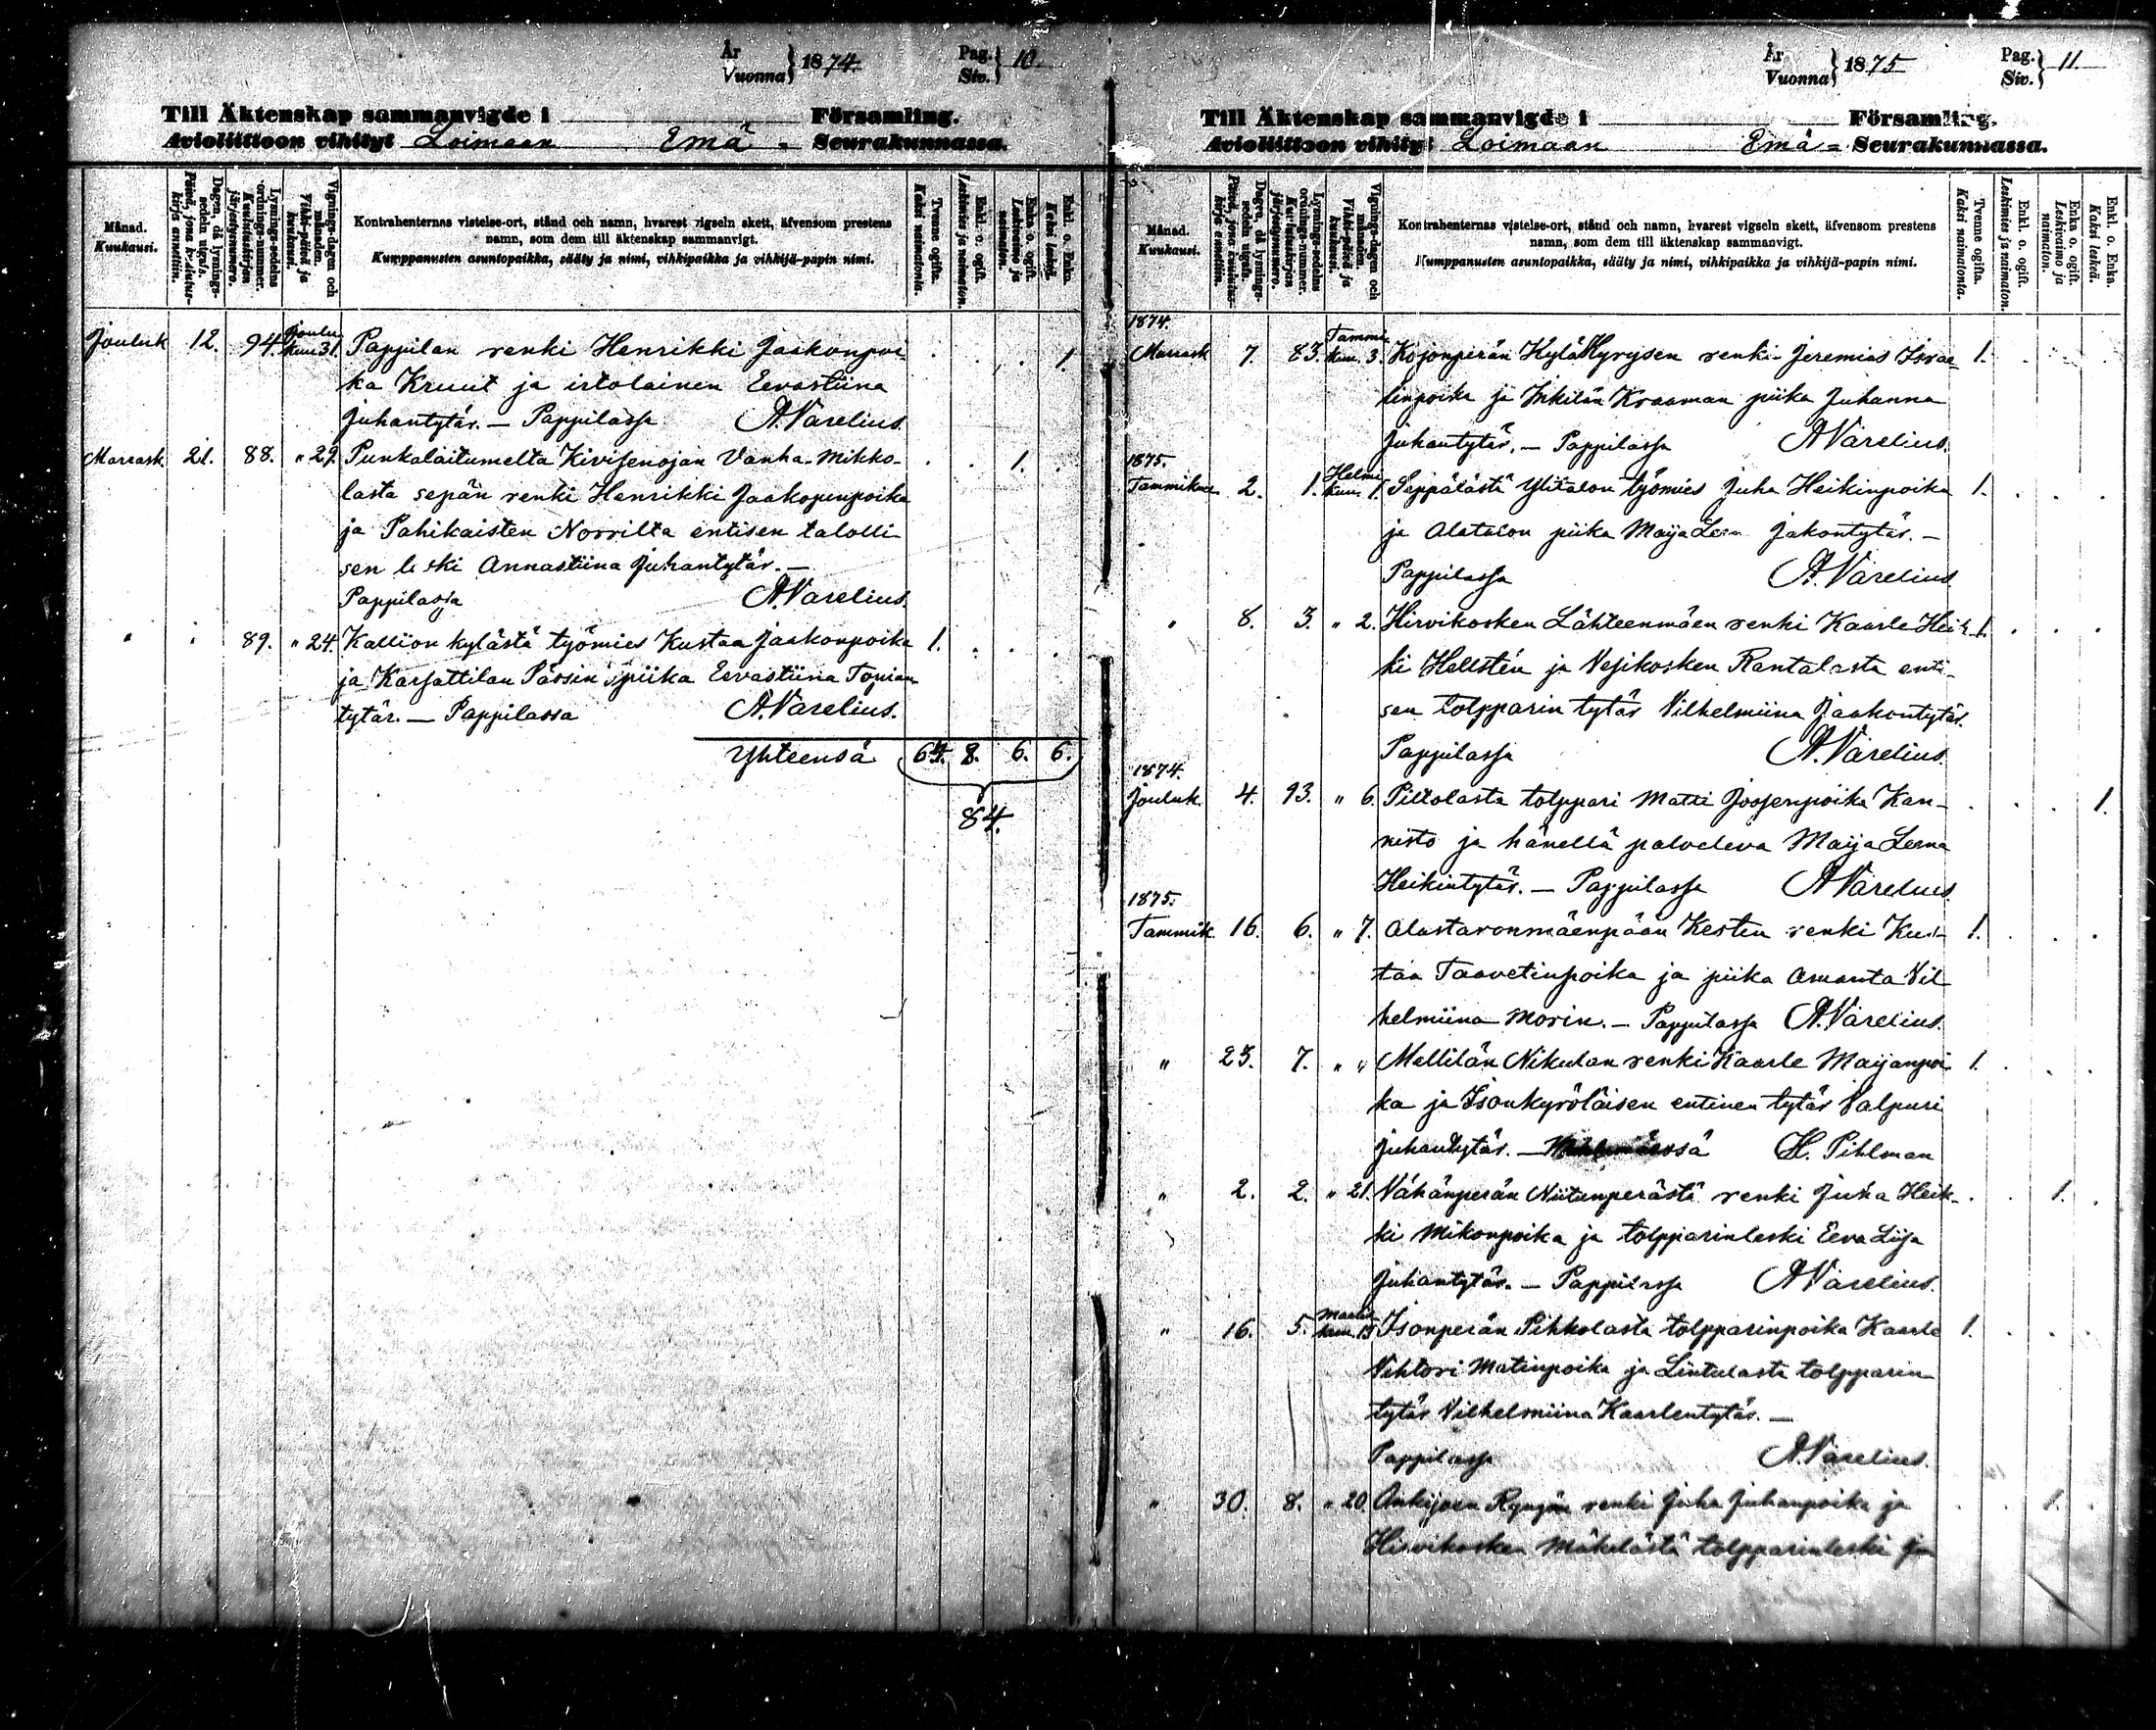 År
Vuonna } 1874. Pag. Siv. } 10.
Till Äktenskap sammanvigde i Församling.
Avioliittoon vihityt Loimaan Emä- Seurakunnassa.
Månad. Kuukausi.
Dagen, då lysnings-sedeln utgafs. Päivä, jona kuulutus-kirja annettiin.
Lysnings-sedelns ordnings-nummer. Kuulutuskirjan järjestysnumero.
Vignings-dagen och månaden. Vihki-päivä ja kuukausi.
Kontrahenternas vistelse-ort, stånd och namn, hvarest vigseln skett, äfvensom prestens
namn, som dem till äktenskap sammanvigt.
Kumppanusten asuntopaikka, sääty ja nimi, vihkipaikka ja vihkijä-papin nimi.
Tvenne ogifta. Kaksi naimatonta.
Enkl. o. ogift. Leskimies ja naimaton.
Enka o. ogift. Leskivaimo ja naimaton.
Enkl. o. Enka. Kaksi leskeä.
Jouluk 12. 94. Joulukuu 31. Pappilan renki Henrikki Jaakonpoi 1
ka Kruut ja irtolainen Eevastiina
Juhantytär. — Pappilassa A. Varelius.
Marrask. 21. 88. " 29. Punkalaitumelta Kivisenojan Vanha-Mikko- 1.
lasta sepän renki Henrikki Jaakopenpoika
ja Pahikaisten Norrilta entisen talolli
sen leski Annastiina Juhantytär. —
Pappilassa A. Varelius.
" " 89. " 24. Kallion kylästä työmies Kustaa Jaakonpoika 1.
ja Karsattilan Pässin piika Eevastiina Topian
tytär. — Pappilassa A. Varelius.
Yhteensä 64. 8. 6. 6.
84.
År
Vuonna } 1875 Pag. Siv. } 11.
Till Äktenskap sammanvigde i Församling.
Avioliittoon vihityt Loimaan Emä- Seurakunnassa.
Månad. Kuukausi.
Dagen, då lysnings-sedeln utgafs. Päivä, jona kuulutus-kirja annettiin.
Lysnings-sedelns ordnings-nummer. Kuulutuskirjan järjestysnumero.
Vignings-dagen och månaden. Vihki-päivä ja kuukausi.
Kontrahenternas vistelse-ort, stånd och namn, hvarest vigseln skett, äfvensom prestens
namn, som dem till äktenskap sammanvigt.
Kumppanusten asuntopaikka, sääty ja nimi, vihkipaikka ja vihkijä-papin nimi.
Tvenne ogifta. Kaksi naimatonta.
Enkl. o. ogift. Leskimies ja naimaton.
Enka o. ogift. Leskivaimo ja naimaton.
Enkl. o. Enka. Kaksi leskeä.
1874.
Marrask 7. 83. Tammikuu 3. Kojonperän Kylä Hyrysen renki Jeremias Israe 1.
linpoika ja Inkilän Kraaman piika Juhanna
Juhantytär. — Pappilassa A. Varelius.
1875.
Tammikuu 2. 1. Helmikuu 1. Seppälästä Ylitalon työmies Juha Heikinpoika 1.
ja Alatalon piika Maija Leena Jakontytär. —
Pappilassa A. Varelius.
" 8. 3. " 2. Hirvikosken Lähteenmäen renki Kaarle Heik 1.
ki Hellstén ja Vesikosken Rantalasta enti
sen tolpparin tytär Vilhelmiina Jaakontytär.
Pappilassa A. Varelius.
1874.
Jouluk. 4. 93. " 6. Piltolasta tolppari Matti Joosenpoika Kan- 1.
nisto ja hänellä palveleva Maija Leena
Heikintytär. — Pappilassa A. Varelius.
1875.
Tammik. 16. 6. " 7. Alastaronmäenpään Kestin renki Kus- 1.
taa Taavetinpoika ja piika Amanta Vil
helmiina Morin. — Pappilassa A. Varelius.
" 23. 7. " " Mellilän Nikulan renki Kaarle Maijanpoi 1.
ka ja Isonkyröläisen entinen tytär Valpuri
Juhantytär. — H. Pihlman
" 2. 2. " 21. Vähänperän Niitunperästä renki Juha Heik- 1.
ki Mikonpoika ja tolpparinleski Eeva Liisa
Juhantytär. — Pappilassa A. Varelius.
" 16. 5. Maaliskuu 15 Isonperän Pihkolasta tolpparinpoika Kaarle 1.
Vihtori Matinpoika ja Lintulasta tolpparin
tytär Vilhelmiina Kaarlentytär. —
Pappilassa A. Varelius.
" 30. 8. " 20 Ankijoen renki Juha Juhanpoika ja 1.
Hirvikosken Mäkelästä tolpparinleski